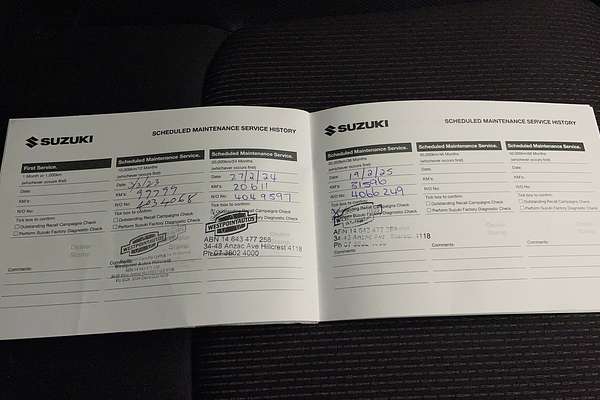 SUZUKI
SCHEDULED MAINTENANCE SERVICE HISTORY
First Service.
1 Month or 1,000km
(whichever occurs first)
Date:
KM's:
R/O No:
Tick box to confirm:
Outstanding Recall Campaigns Check
Perform Suzuki Factory Diagnostic Check
Dealer
Stamp
Comments:
Scheduled Maintenance Service.
10,000km/12 Months
(whichever occurs first)
Date:
KM's:
R/O No:
Tick box to confirm:
Outstanding Recall Campaigns Check
Perform Suzuki Factory Diagnostic Check
Comments:
Scheduled Maintenance Service.
20,000km/24 Months
(whichever occurs first)
Date: 27/2/24
KM's: 20611
R/O No: 4049597
Tick box to confirm:
Outstanding Recall Campaigns Check
WESTPOINT
ABN 14 643 477 258
34-48 Anzac Ave Hillcrest 4118
Ph 07 3802 4000
Comments:
SUZUKI
SCHEDULED MAINTENANCE SERVICE HISTORY
Scheduled Maintenance Service.
(whichever occurs first)
Date: 19/2/25
KM's: 31596
R/O No: 4066249
Tick box to confirm:
ABN 14 643 477 258
4118
Comments:
Scheduled Maintenance Service.
(whichever occurs first)
Date:
KM's:
R/O No:
Tick box to confirm:
Outstanding Recall Campaigns Check
Perform Suzuki Factory Diagnostic Check
Dealer
Stamp
Comments:
Scheduled Maintenance Service.
(whichever occurs first)
Date:
KM's:
R/O No:
Tick box to confirm:
Outstanding Recall Campaigns Check
Perform Suzuki Factory Diagnostic Check
Dealer
Stamp
Comments: